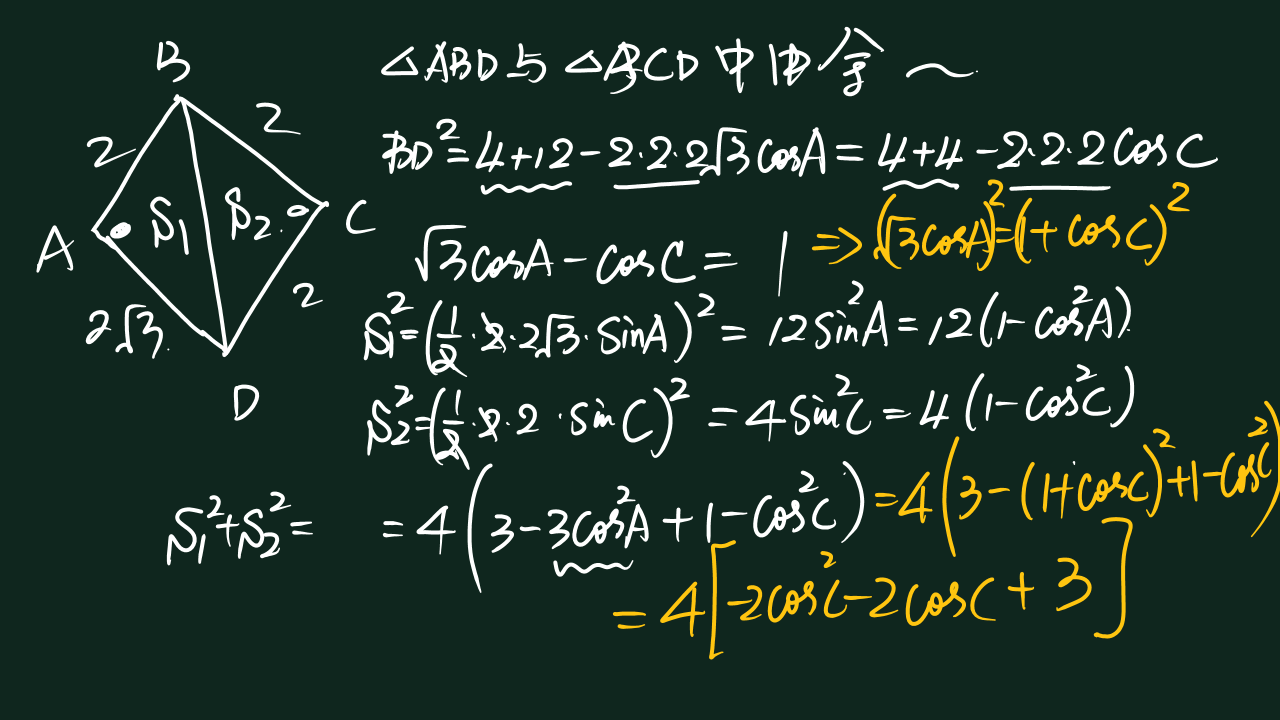 △ABD与△BCD中由余~
BD²=4+12-2·2·2√3cosA=4+4-2·2·2cosC
√3cosA-cosC=1 ⇒(√3cosA)²=(1+cosC)²
S₁²=(1/2·2·2√3·sinA)²=12sin²A=12(1-cos²A)
S₂²=(1/2·2·2·sinC)²=4sin²C=4(1-cos²C)
S₁²+S₂²= =4(3-3cos²A+1-cos²C)=4(3-(1+cosC)²+1-cos²C)
=4[-2cos²C-2cosC+3]
B
2 2
A S₁ S₂ C
2√3 2
D